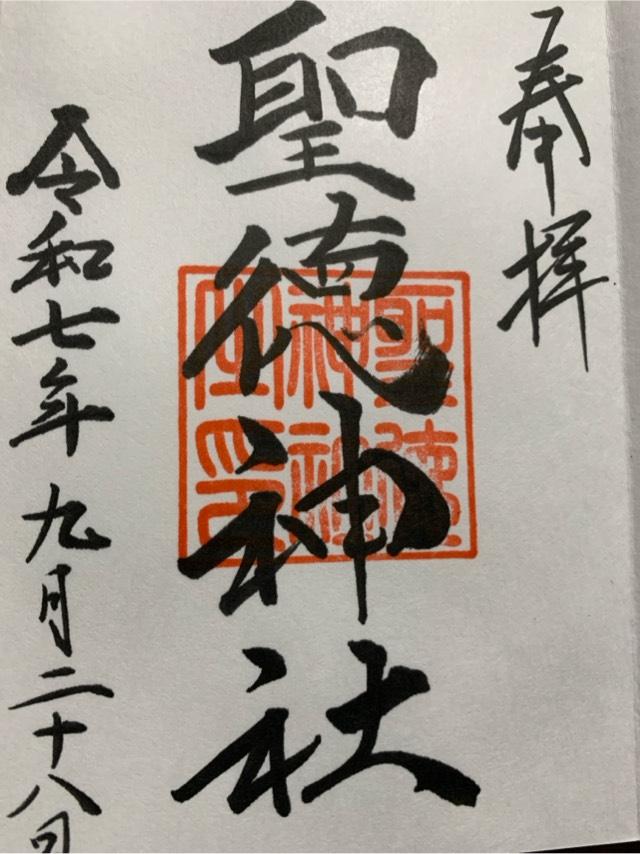 奉拝
聖徳神社
聖徳
神社
之印
令和七年九月二十八日